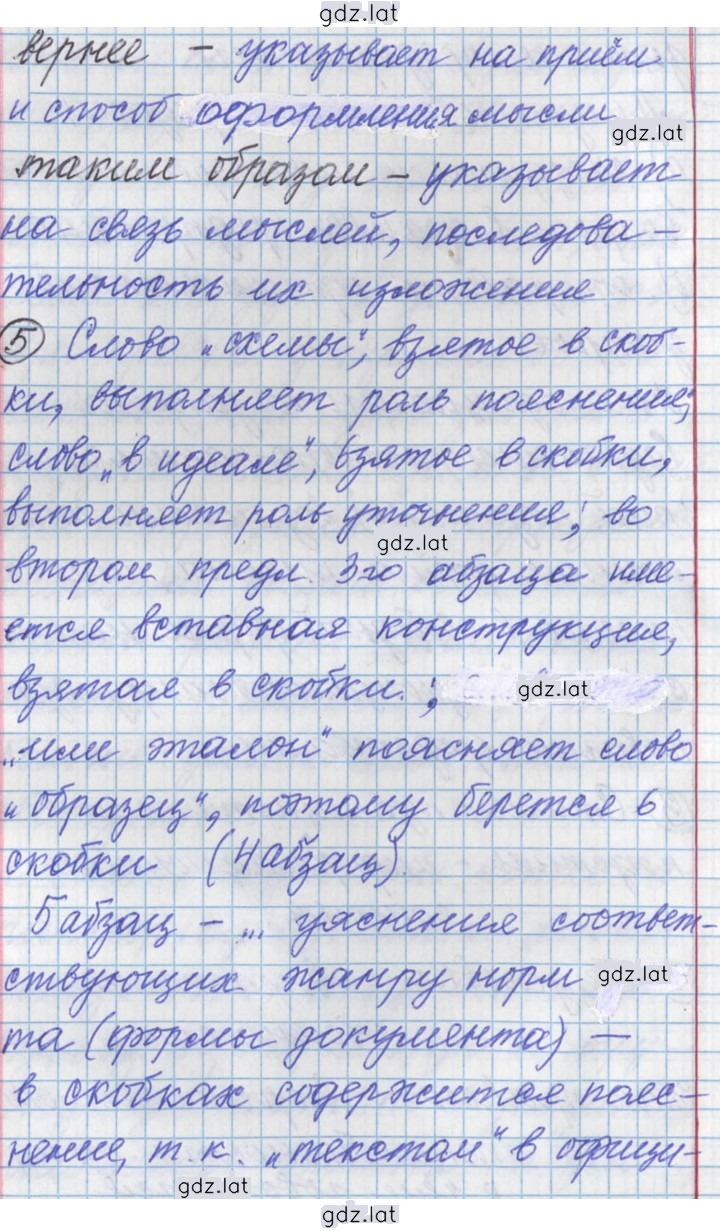 gdz.lat
вернее – указывает на приём
и способ оформления мысли
gdz.lat
таким образом – указывает
на связь мыслей, последова-
тельность их изложения
5 Слово „схемы“, взятое в скоб-
ки, выполняет роль пояснения;
слово „в идеале“, взятое в скобки,
выполняет роль уточнения; во
gdz.lat
втором предл. 3го абзаца име-
ется вставная конструкция,
взятая в скобки. ;
gdz.lat
„или эталон“ поясняет слово
„образец“, поэтому берется в
скобки (4 абзац).
5 абзац – „... уяснения соответ-
ствующих жанру норм
gdz.lat
та (формы документа) –
в скобках содержится пояс-
нение, т.к. „текстом“ в офици-
gdz.lat
gdz.lat